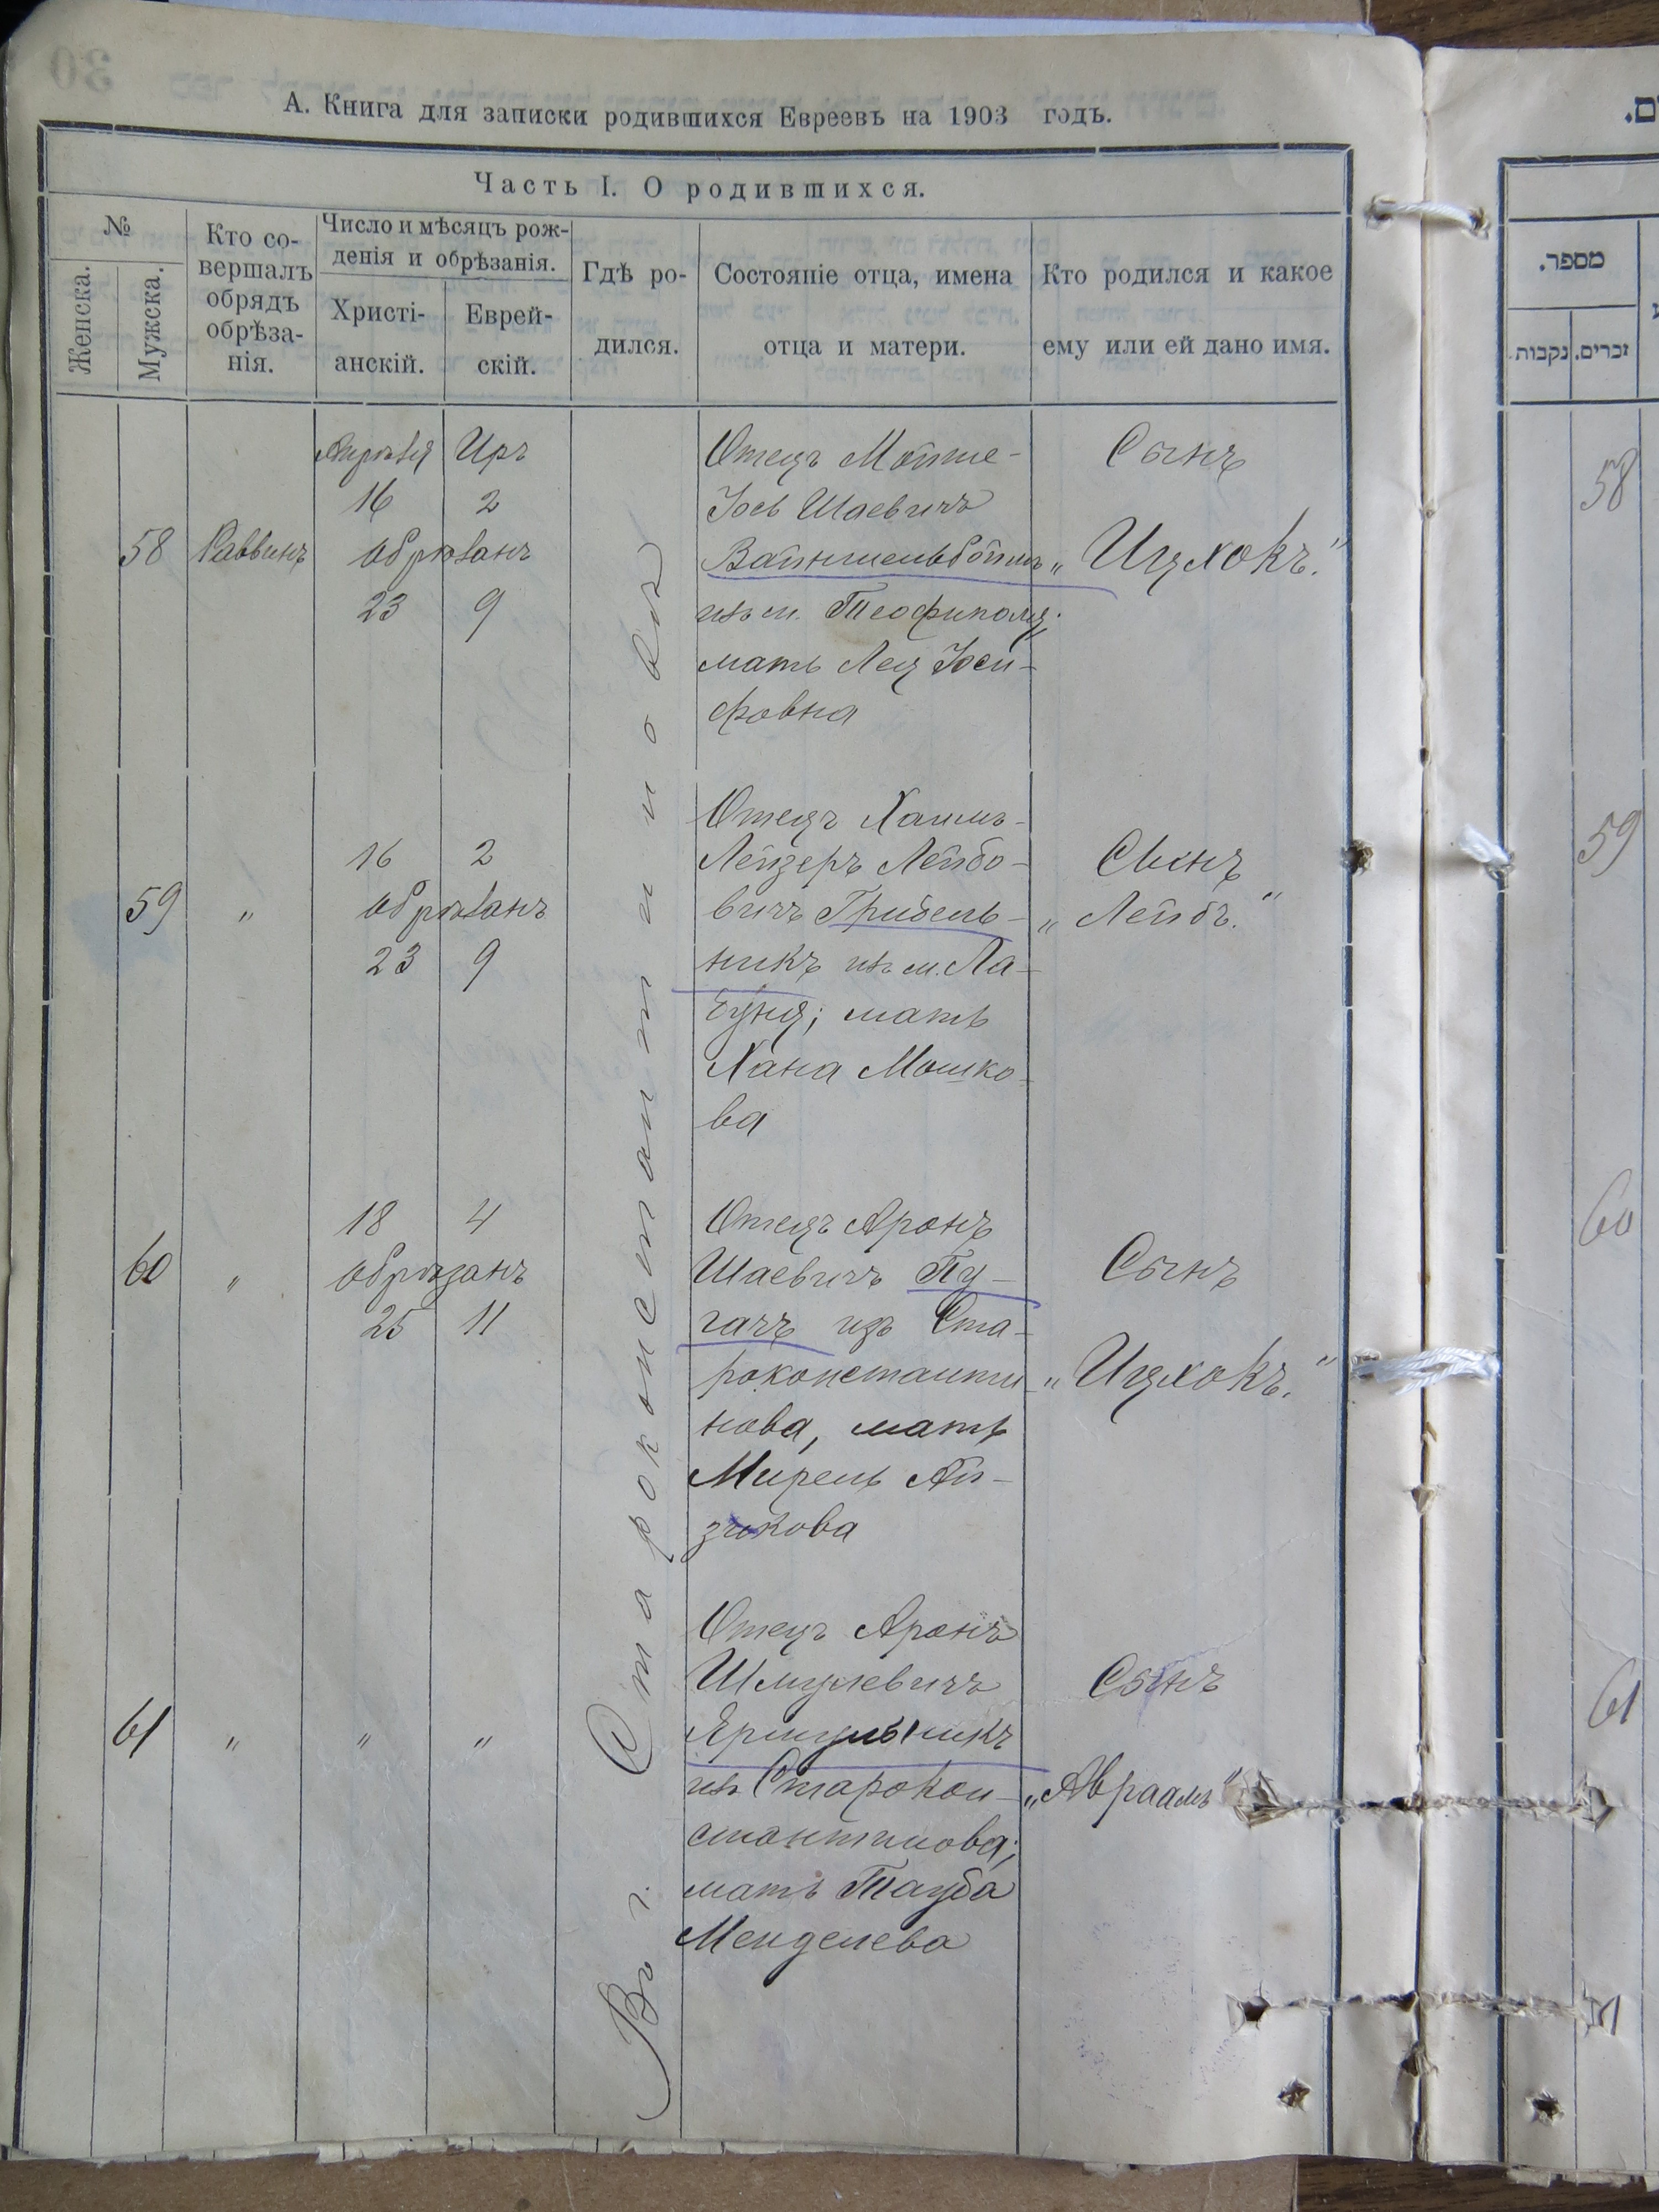 А. Книга для записки родившихся Евреевъ на 1903 годъ.
Часть I. О родившихся.
№
Женска.
Мужска.
Кто со-
вершалъ
обрядъ
обрѣза-
нія.
Число и мѣсяцъ рож-
денія и обрѣзанія.
Христі-
анскій.
Еврей-
скій.
Гдѣ ро-
дился.
Состояніе отца, имена
отца и матери.
Кто родился и какое
ему или ей дано имя.
Въ г. Староконстантиновѣ
58
Раввинъ
Апрѣля Иръ
16 2
обрѣзанъ
23 9
Отецъ Мойше-
Іось Шаевичъ
Вайншельбоймъ
изъ м. Теофиполя;
мать Лея Іоси-
фовна
Сынъ
„Ицхокъ."
59
"
16 2
обрѣзанъ
23 9
Отецъ Хаимъ-
Лейзеръ Лейбо-
вичъ Грибель-
никъ изъ м. Ла-
буня; мать
Хана Мошко-
ва
Сынъ
„Лейбъ."
60
"
18 4
обрѣзанъ
25 11
Отецъ Аронъ
Шаевичъ Пу-
гачъ изъ Ста-
роконстанти-
нова, мать
Мирель Ай-
зикова
Сынъ
„Ицхокъ."
61
" " "
Отецъ Аронъ
Шмулевичъ
Ярмульникъ
изъ Старокон-
стантинова;
мать Тауба
Менделева
Сынъ
„Авраамъ"
מספר.
זכרים.
נקבות.
58
59
60
61